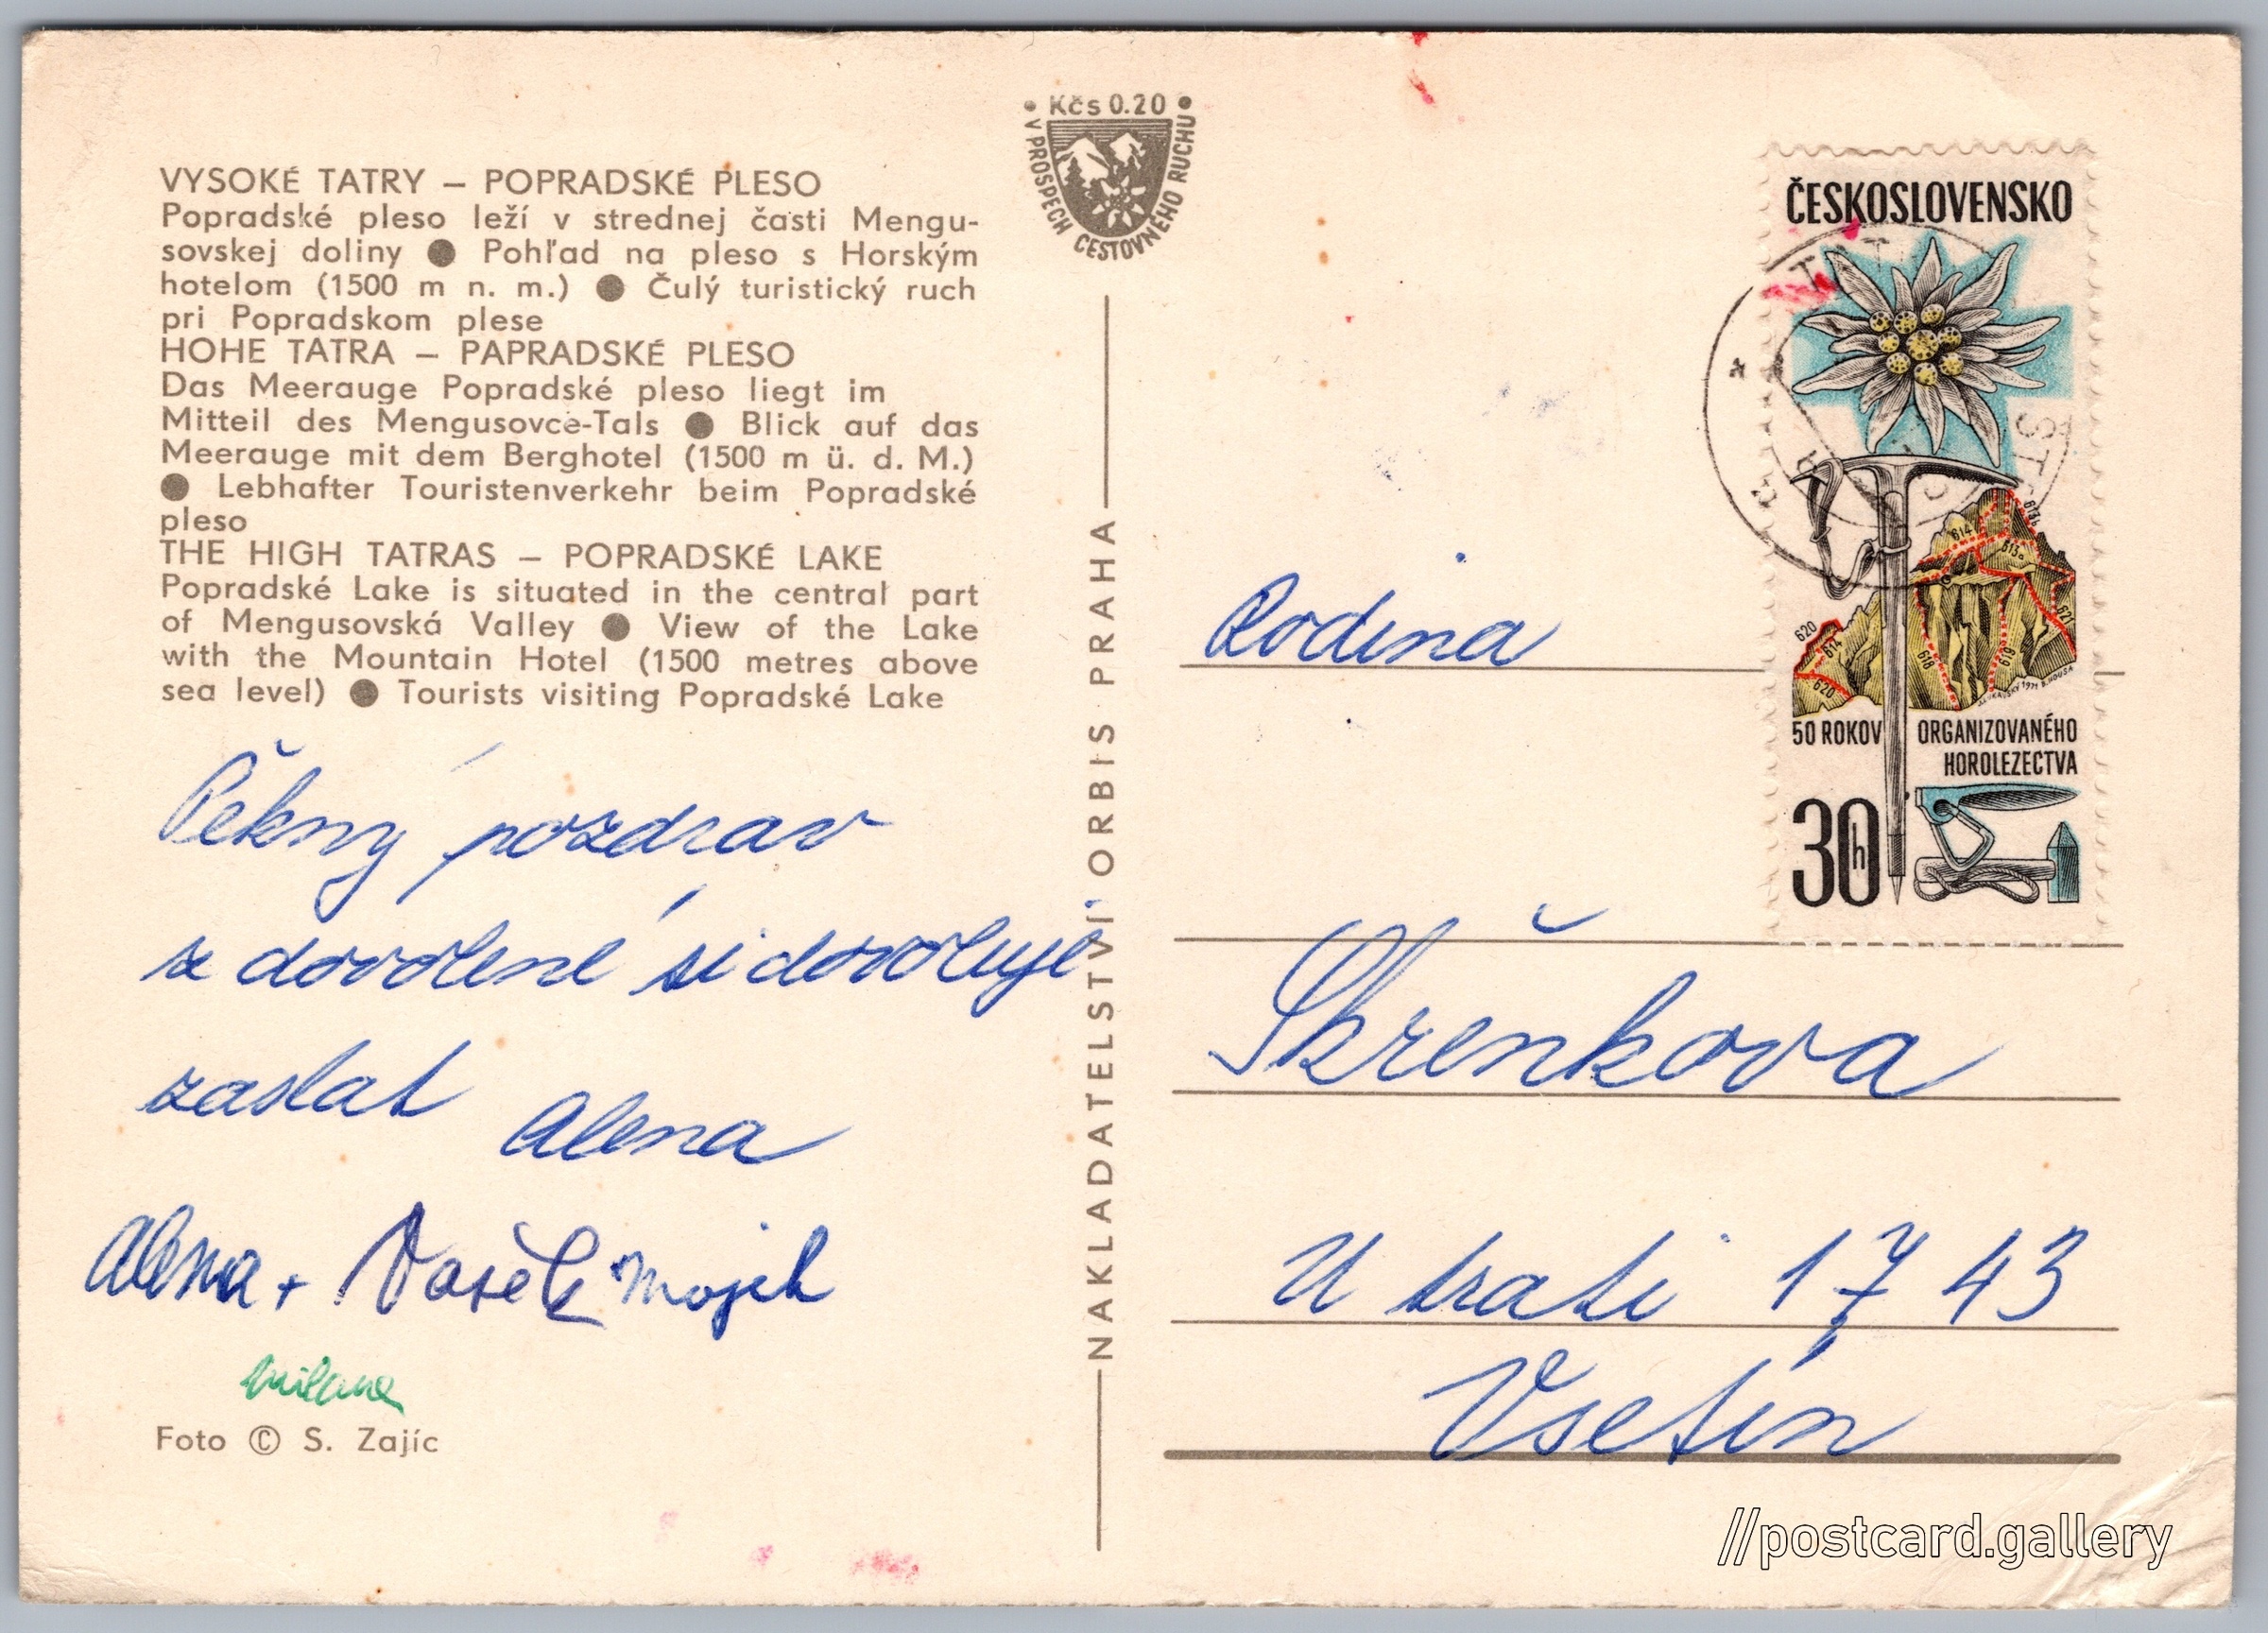 VYSOKÉ TATRY – POPRADSKÉ PLESO
Popradské pleso leží v strednej časti Mengu-
sovskej doliny ● Pohľad na pleso s Horským
hotelom (1500 m n. m.) ● Čulý turistický ruch
pri Popradskom plese
HOHE TATRA – PAPRADSKÉ PLESO
Das Meerauge Popradské pleso liegt im
Mitteil des Mengusovce-Tals ● Blick auf das
Meerauge mit dem Berghotel (1500 m ü. d. M.)
● Lebhafter Touristenverkehr beim Popradské
pleso
THE HIGH TATRAS – POPRADSKÉ LAKE
Popradské Lake is situated in the central part
of Mengusovská Valley ● View of the Lake
with the Mountain Hotel (1500 metres above
sea level) ● Tourists visiting Popradské Lake
Pěkný pozdrav
z dovolené si dovoluje
zaslat Alena
Alena + Vašek
milana
Foto © S. Zajíc
• Kčs 0.20 •
V PROSPECH CESTOVNÉHO RUCHU
NAKLADATELSTVÍ ORBIS PRAHA
ČESKOSLOVENSKO
614
613a
620
614
620
618
619
621
50 ROKOV ORGANIZOVANÉHO
HOROLEZECTVA
30h
Rodina
Skřenkova
U trati 1743
Vsetín
//postcard.gallery